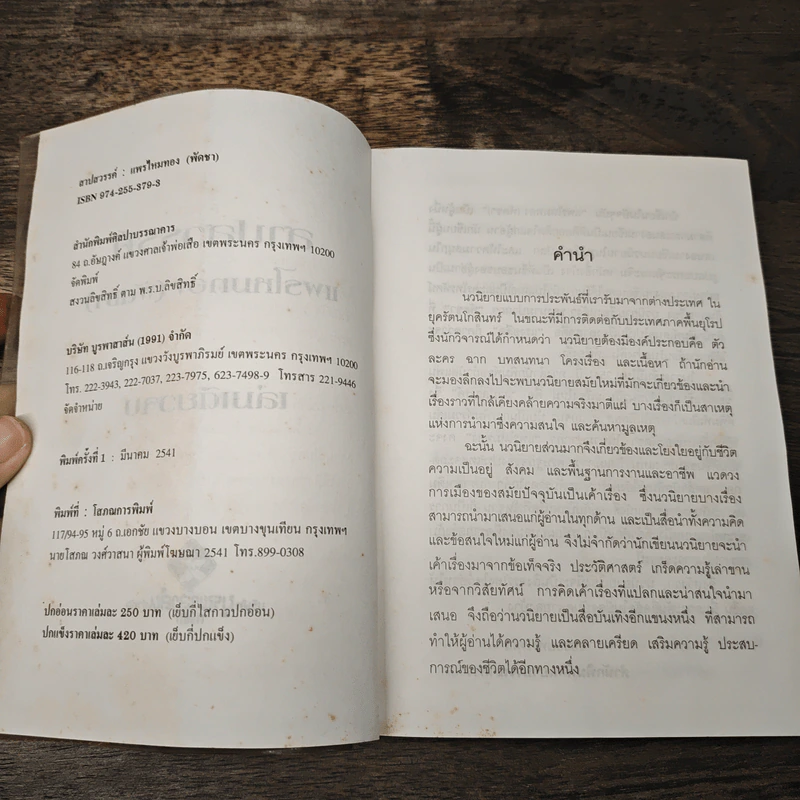 สาปสวรรค์ : แพรไหมทอง (พัดชา)
ISBN 974-255-379-3
สำนักพิมพ์ศิลปาบรรณาคาร
84 ถ.อัษฎางค์ แขวงศาลเจ้าพ่อเสือ เขตพระนคร กรุงเทพฯ 10200
จัดพิมพ์
สงวนลิขสิทธิ์ ตาม พ.ร.บ.ลิขสิทธิ์
บริษัท บูรพาสาส์น (1991) จำกัด
116-118 ถ.เจริญกรุง แขวงวังบูรพาภิรมย์ เขตพระนคร กรุงเทพฯ 10200
โทร. 222-3943, 222-7037, 223-7975, 623-7498-9 โทรสาร 221-9446
จัดจำหน่าย
พิมพ์ครั้งที่ 1 : มีนาคม 2541
พิมพ์ที่ : โสภณการพิมพ์
117/94-95 หมู่ 6 ถ.เอกชัย แขวงบางบอน เขตบางขุนเทียน กรุงเทพฯ
นายโสภณ วงศ์วาสนา ผู้พิมพ์โฆษณา 2541 โทร.899-0308
ปกอ่อนราคาเล่มละ 250 บาท (เย็บกี่ไสกาวปกอ่อน)
ปกแข็งราคาเล่มละ 420 บาท (เย็บกี่ปกแข็ง)
คำนำ
นวนิยายแบบการประพันธ์ที่เรารับมาจากต่างประเทศ ใน
ยุครัตนโกสินทร์ ในขณะที่มีการติดต่อกับประเทศภาคพื้นยุโรป
ซึ่งนักวิจารณ์ได้กำหนดว่า นวนิยายต้องมีองค์ประกอบคือ ตัว
ละคร ฉาก บทสนทนา โครงเรื่อง และเนื้อหา ถ้านักอ่าน
จะมองลึกลงไปจะพบนวนิยายสมัยใหม่ที่มักจะเกี่ยวข้องและนำ
เรื่องราวที่ใกล้เคียงคล้ายความจริงมาตีแผ่ บางเรื่องก็เป็นสาเหตุ
แห่งการนำมาซึ่งความสนใจ และค้นหามูลเหตุ
ฉะนั้น นวนิยายส่วนมากจึงเกี่ยวข้องและโยงใยอยู่กับชีวิต
ความเป็นอยู่ สังคม และพื้นฐานการงานและอาชีพ แวดวง
การเมืองของสมัยปัจจุบันเป็นเค้าเรื่อง ซึ่งนวนิยายบางเรื่อง
สามารถนำมาเสนอแก่ผู้อ่านในทุกด้าน และเป็นสื่อนำทั้งความคิด
และข้อสนใจใหม่แก่ผู้อ่าน จึงไม่จำกัดว่านักเขียนนวนิยายจะนำ
เค้าเรื่องมาจากข้อเท็จจริง ประวัติศาสตร์ เกร็ดความรู้เล่าขาน
หรือจากวิสัยทัศน์ การคิดเค้าเรื่องที่แปลกและน่าสนใจนำมา
เสนอ จึงถือว่านวนิยายเป็นสื่อบันเทิงอีกแขนงหนึ่ง ที่สามารถ
ทำให้ผู้อ่านได้ความรู้ และคลายเครียด เสริมความรู้ ประสบ-
การณ์ของชีวิตได้อีกทางหนึ่ง